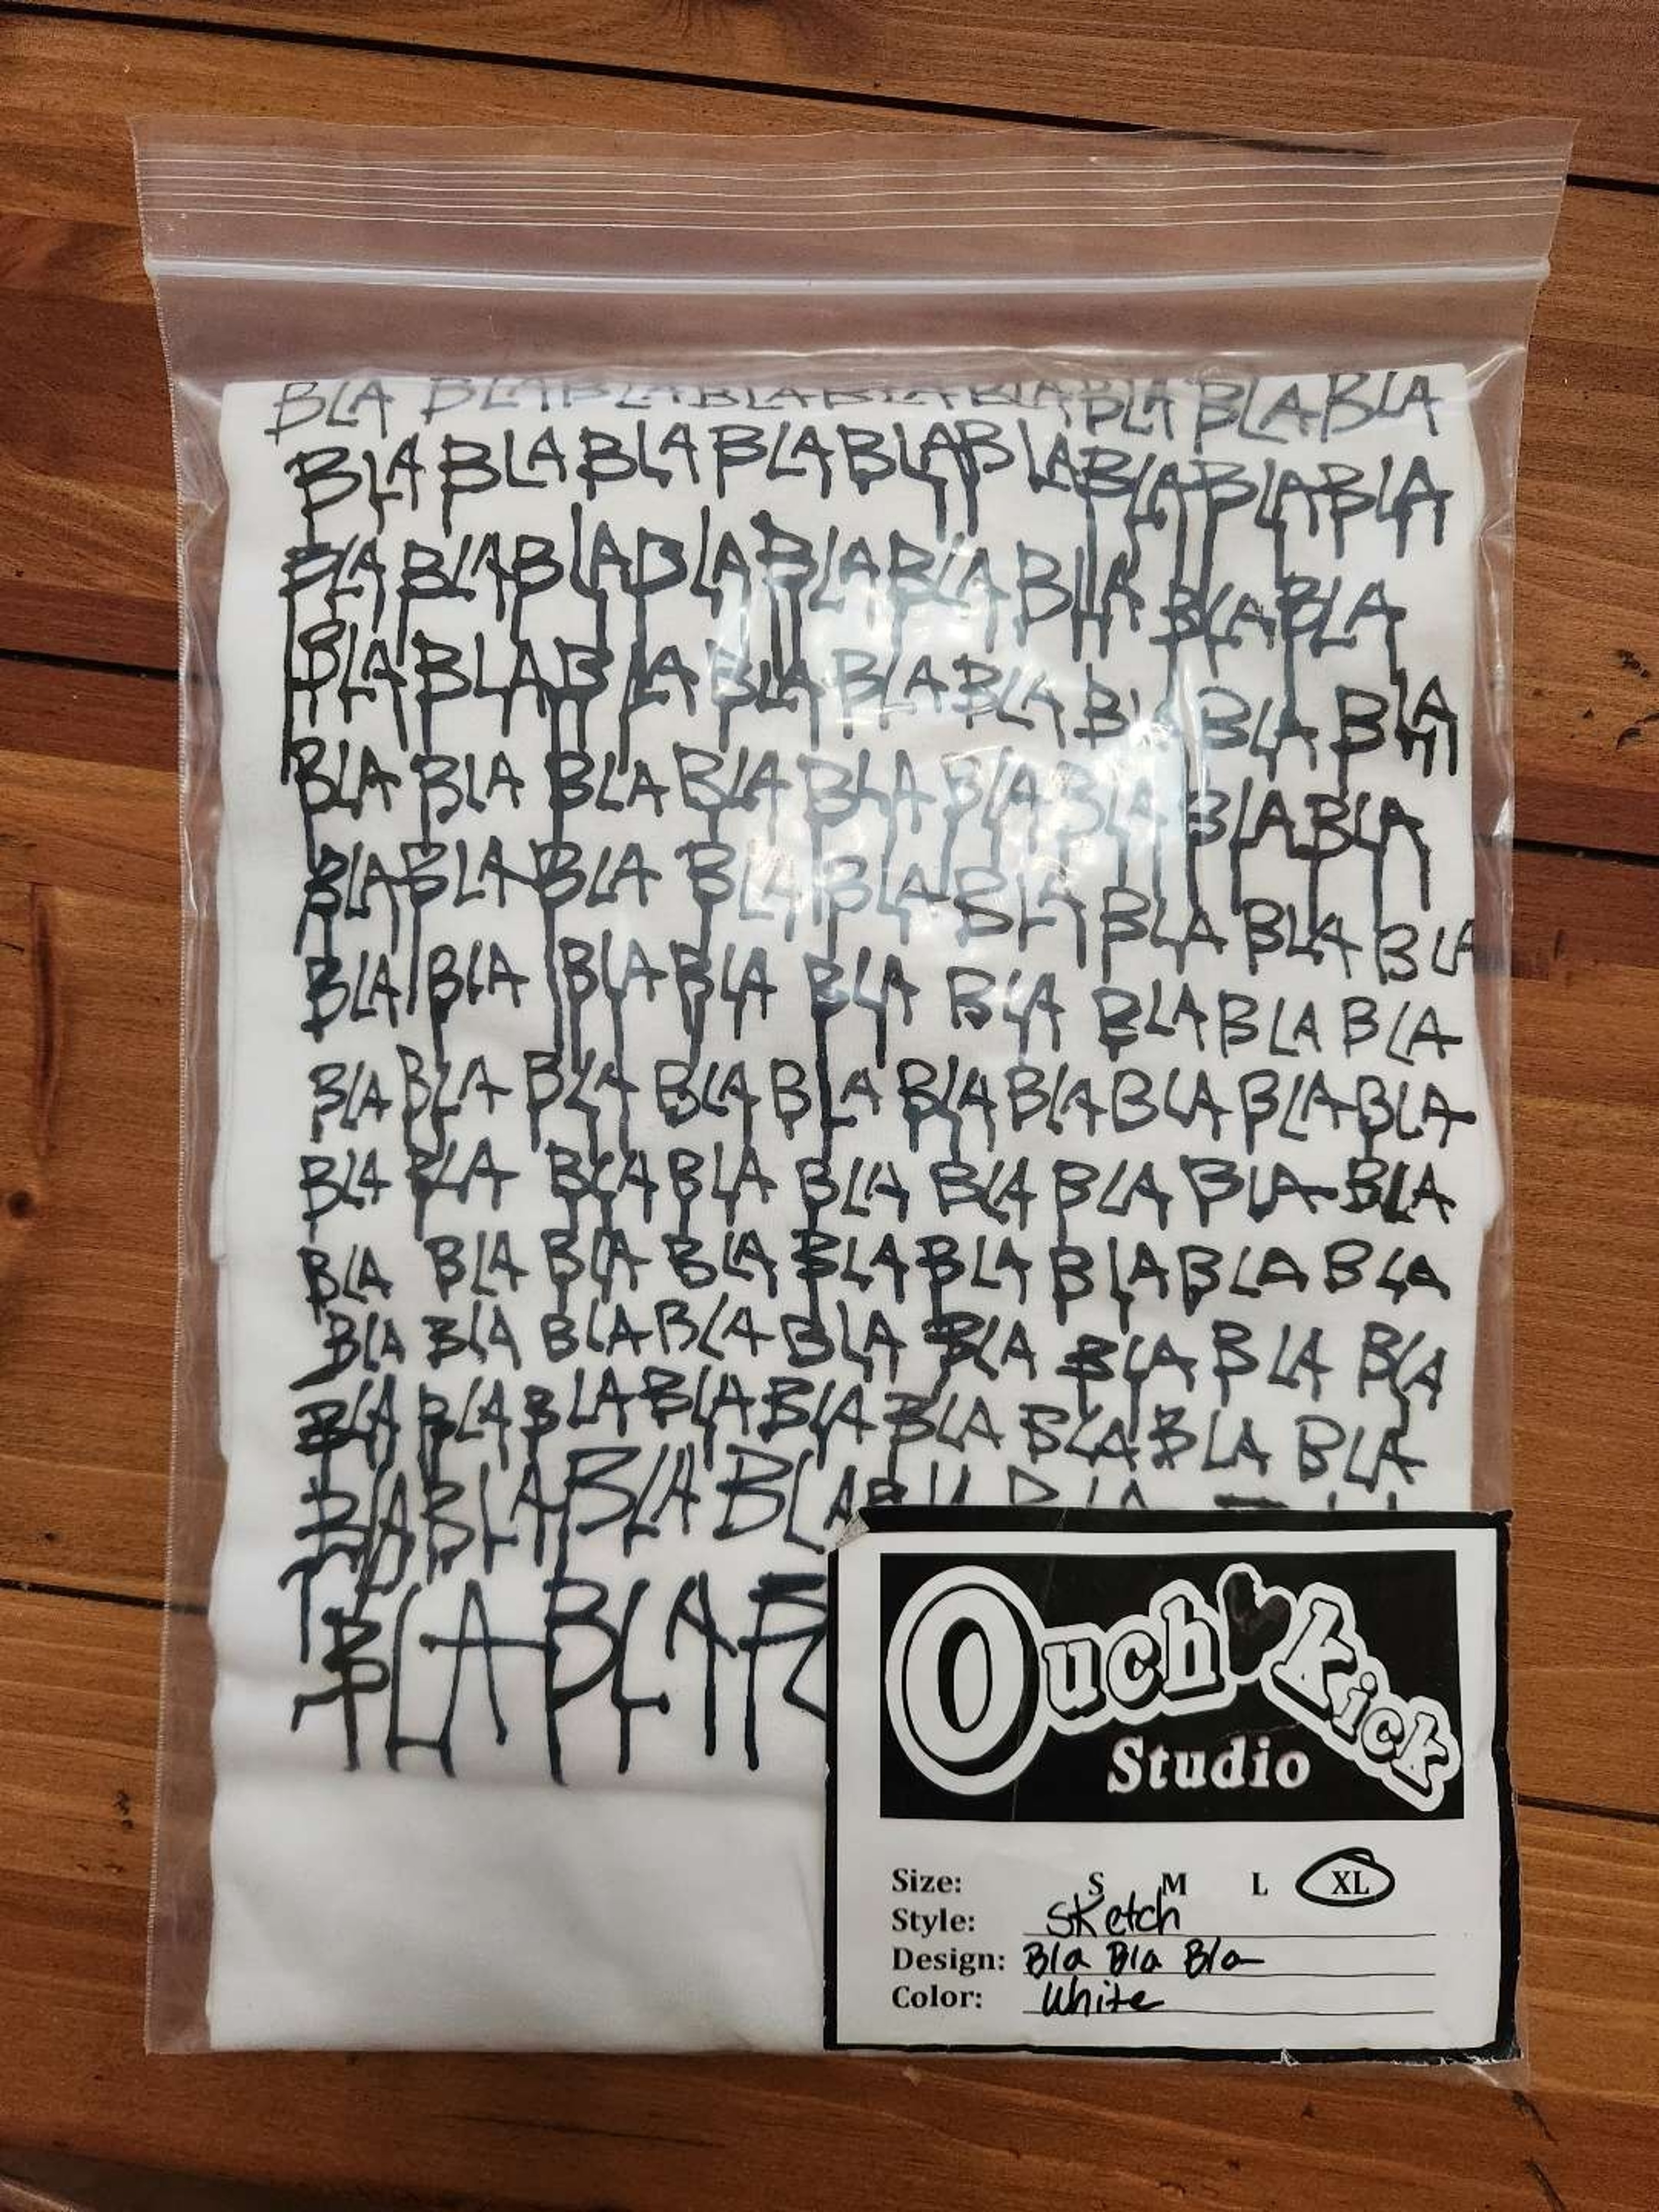 BLA BLA BLA BLA BLA BLA BLA BLA BLA
BLA BLA BLA BLA BLA BLA BLA BLA BLA
BLA BLA BLA BLA BLA BLA BLA BLA BLA
BLA BLA BLA BLA BLA BLA BLA BLA BLA
BLA BLA BLA BLA BLA BLA BLA BLA BLA
BLA BLA BLA BLA BLA BLA BLA BLA BLA
BLA BLA BLA BLA BLA BLA BLA BLA BLA
BLA BLA BLA BLA BLA BLA BLA BLA BLA BLA
BLA BLA BLA BLA BLA BLA BLA BLA BLA
BLA BLA BLA BLA BLA BLA BLA BLA BLA
BLA BLA BLA BLA BLA BLA BLA BLA BLA
BLA BLA BLA BLA BLA BLA BLA BLA BLA
BLA BLA BLA BLA
BLA BLA
Ouch Kick
Studio
Size: S M L XL
Style: Sketch
Design: Bla Bla Bla
Color: White